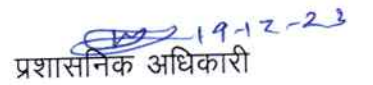 19-12-23
प्रशासनिक अधिकारी